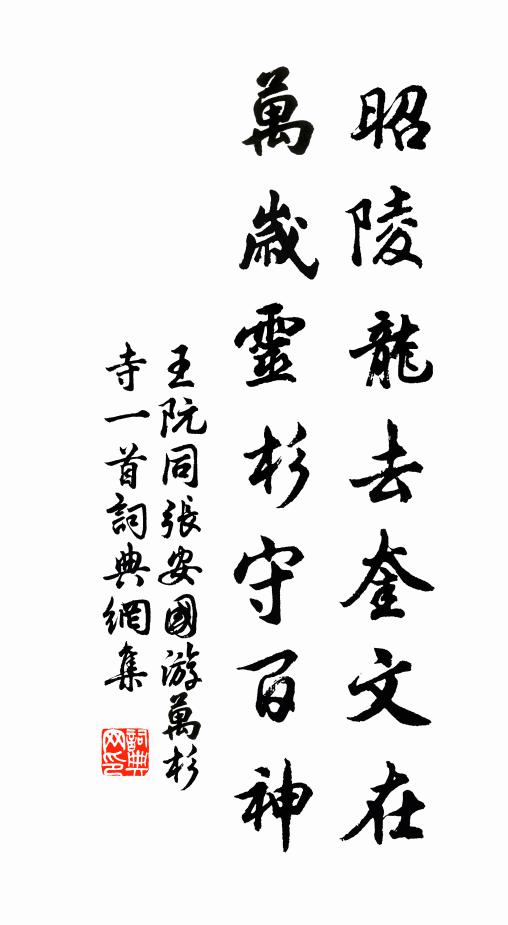 昭陵龍去奎文在
萬歲靈杉守百神
王阮同張安國游萬杉
寺一首詞典網集
詞典網印